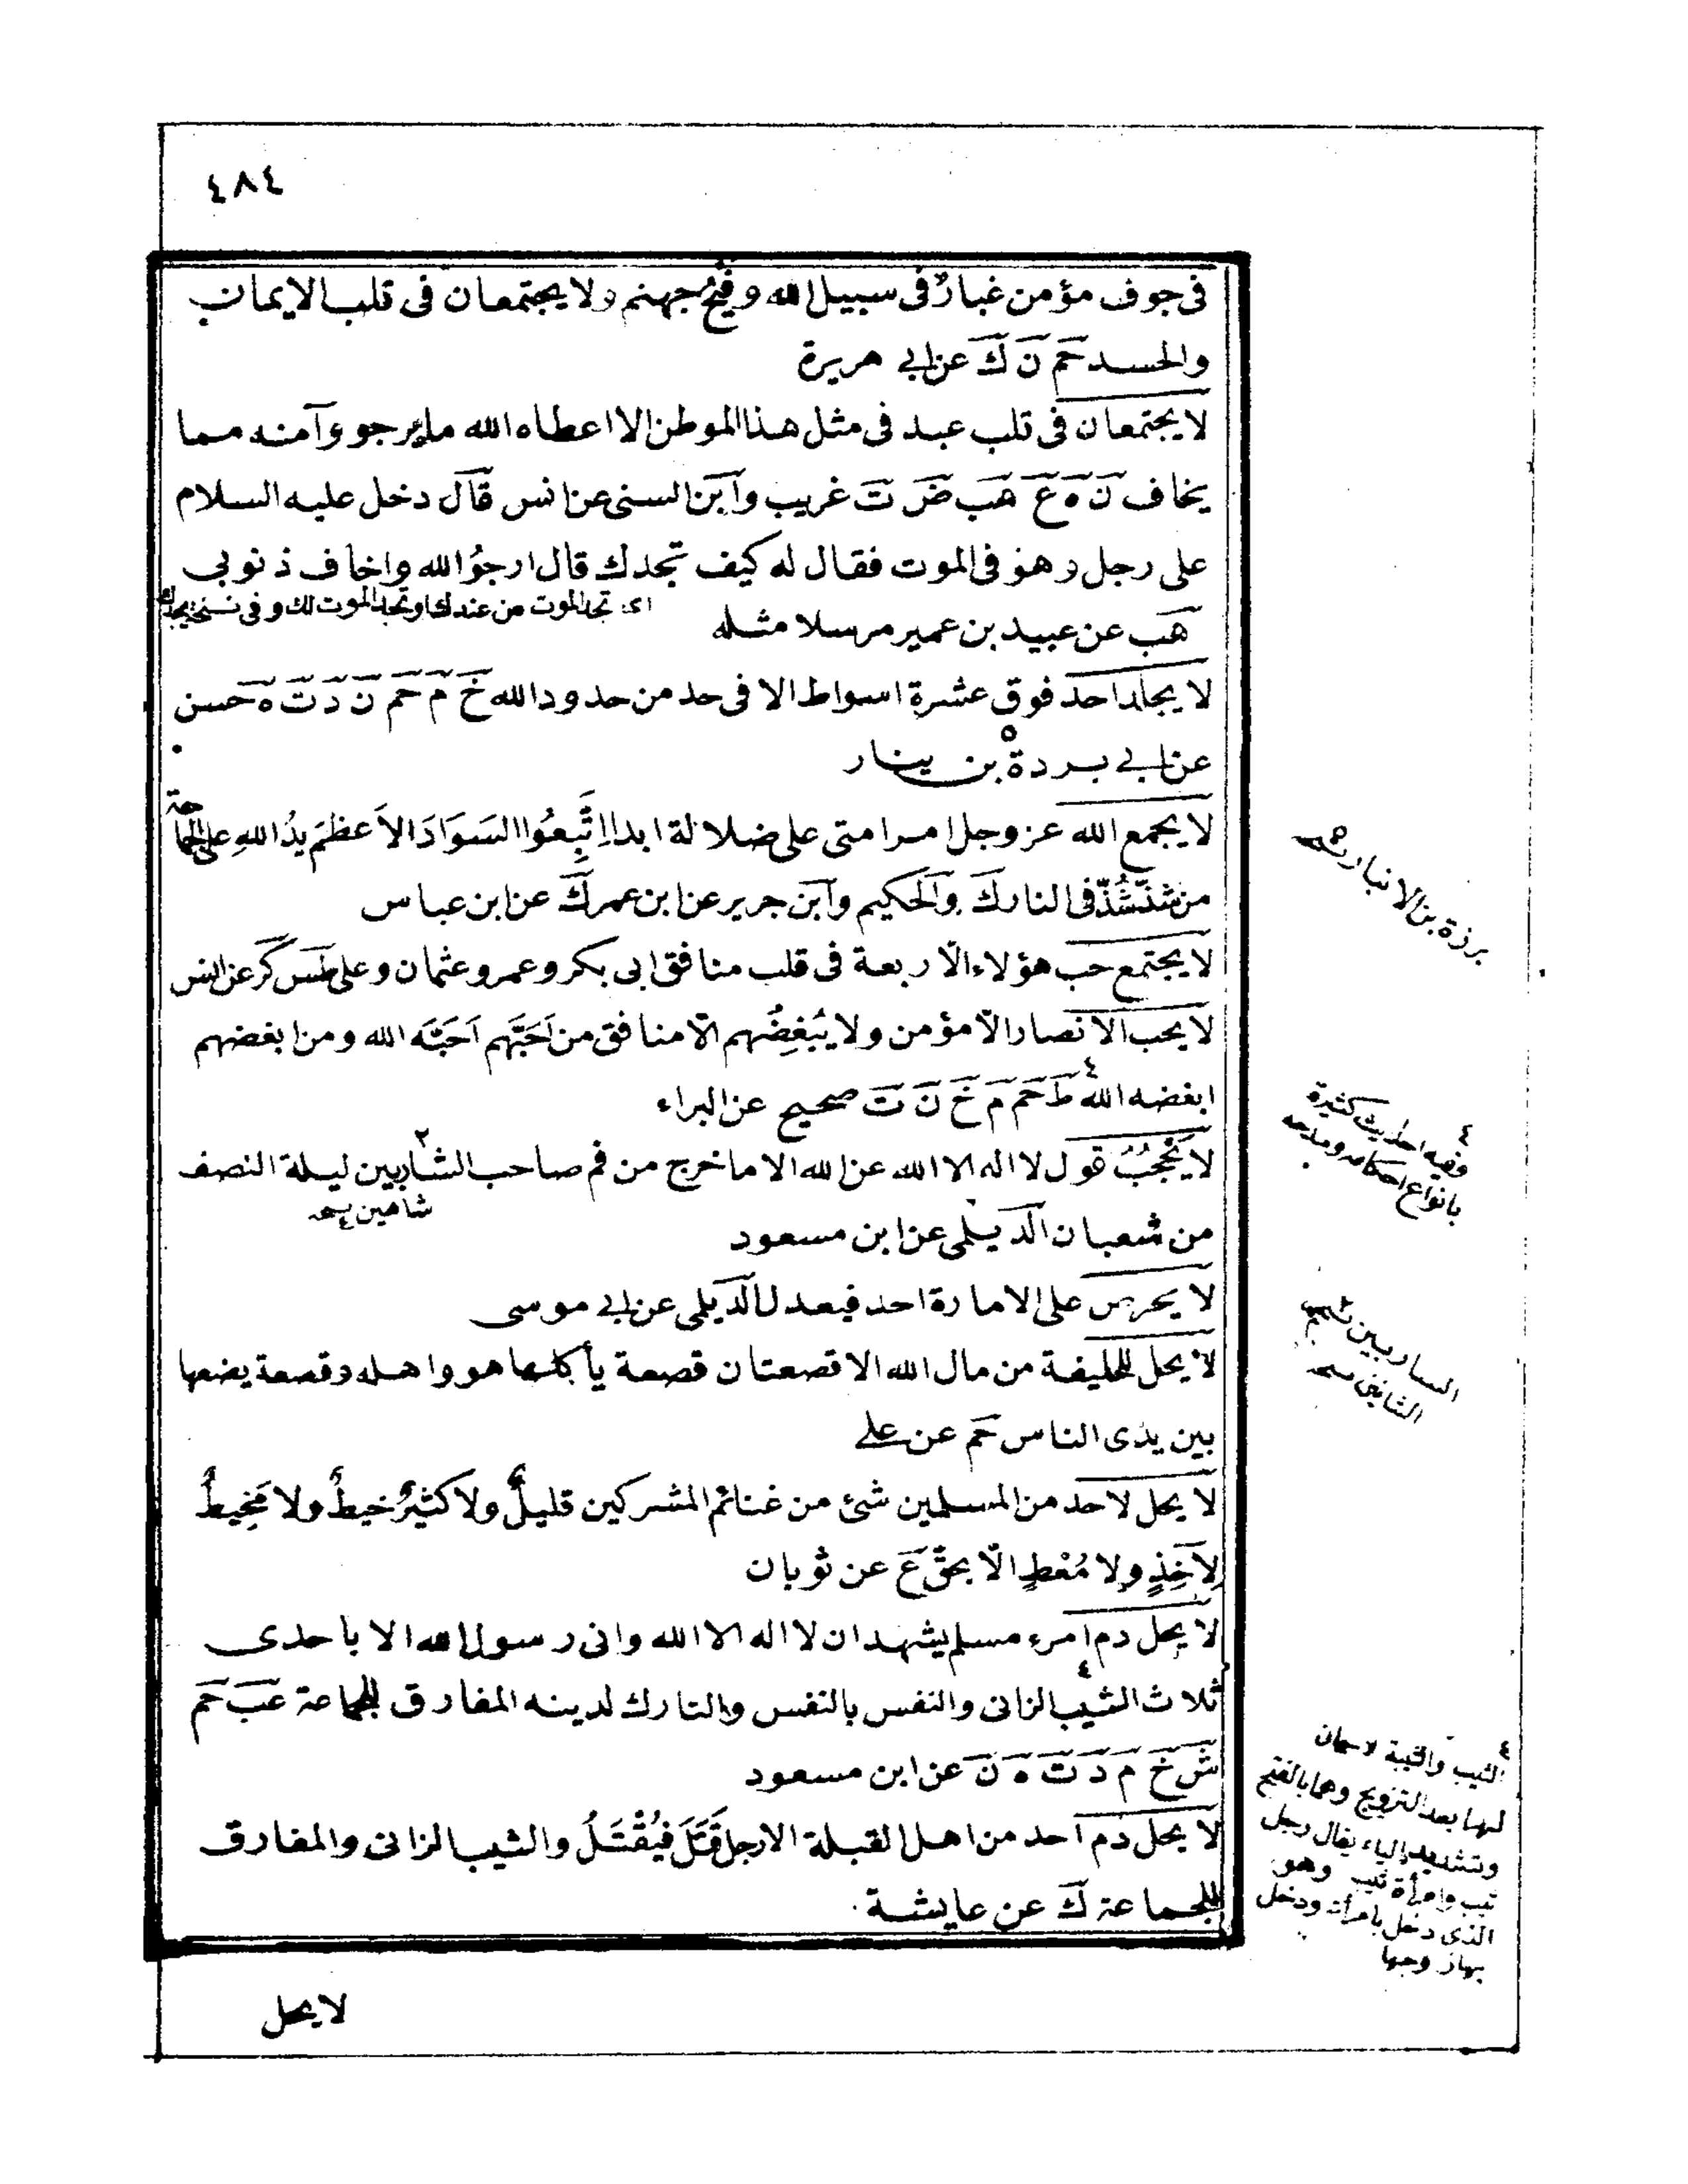 ٤٨٤
فى جوف مؤمن غبارٌ فى سبيل الله وفَيْحُ جهنم ولا يجتمعان فى قلب الايمان
والحسد حَم نَ كَ عن ابى هريرة
لا يجتمعان فى قلب عبد فى مثل هذا الموطن الا اعطاه الله ما يرجو وآمنه مما
يخاف نَ هَ عَ هَب ضَ تَ غريب وآبن السنى عن انس قال دخل عليه السلام
على رجل وهو فى الموت فقال له كيف تجدك قال ارجوُ الله واخاف ذنوبى
اى تجد الموت من عندك او تجد الموت لك وفى نسخ يجدك
هَب عن عبيد بن عمير مرسلا مثله
لا يجلد احد فوق عشرة اسواط الا فى حد من حدود الله خَ مَ حَم نَ دَ تَ هَ حسن
عن ابى بردة بن ينار
لا يجمع الله عز وجل امر امتى على ضلالة ابدا اتَّبِعُوا السَوَادَ الاَعظمَ يدُ اللهِ على الجماعة
من شذّ شُذّ فى النار كَ والحكيم وآبن جرير عن ابن عمر كَ عن ابن عباس
لا يجتمع حب هؤلاء الاربعة فى قلب منافق ابى بكر وعمر وعثمان وعلى طَس كَر عن انس
لا يحب الانصار الّا مؤمن ولا يُبغِضُهم الّا منافق من اَحَبَّهم اَحَبَّه الله ومن ابغضهم
ابغضه الله ٤ طَ حَم مَ خَ نَ تَ صحيح عن البراء
لا يَحْجُبُ قول لا اله الا الله عن الله الا ما خرج من فم صاحب الشاربين ٢ ليلة النصف
شامين
من شعبان الديلمى عن ابن مسعود
لا يحرس على الامارة احد فيعدل الديلمى عن ابى موسى
لا يحل للخليفة من مال الله الا قصعتان قصعة يأكلها هو واهله وقصعة يضعها
بين يدى الناس حَم عن على
لا يحل لاحد من المسلمين شئ من غنائم المشركين قليلٌ ولا كثيرٌ خيطٌ ولا مَخِيطٌ
لآخِذٍ ولا مُعْطٍ الّا بحقّ عَ عن ثوبان
لا يحل دم امرء مسلم يشهد ان لا اله الا الله وانى رسول الله الا باحدى
ثلاث الثيب ٤ الزانى والنفس بالنفس والتارك لدينه المفارق للجماعة عَب حَم
شَ خَ مَ دَ تَ هَ نَ عن ابن مسعود
لا يحل دم احد من اهل القبلة الا رجل قَتَلَ فيُقْتَلُ والثيب الزانى والمفارق
للجماعة كَ عن عايشة
لا يحل
برزة بن الانبار
٤ وفيه احاديث كثيرة
بانواع احكامه ومدحه
الساربين
٤ الثيب والثيبة لاسمان
لهما بعد التزويج وهما بالفتح
وتشديد الياء يقال رجل
ثيب وامرأة ثيب وهو
الذى دخل بامرأة ودخل
بها زوجها